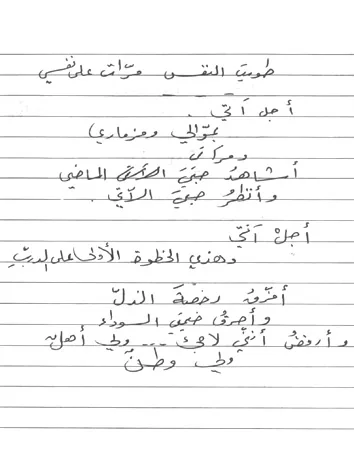 طويتُ النفس مرّات على نفسي
أجل آتي .
بموّالي ومزماري
ومرآتي
أشاهدُ حبّيَ الماضي
وأنظرُ حبّيَ الآتي .
أجلْ آتيّ
وهذي الخطوة الأولى على الدربِ
أمزّقُ رخصةَ الذلّ
وأحرقُ خيمتي السوداء
وأرفضُ أنني لاجئ ... ولي أهلٌ
ولي وطنٌ